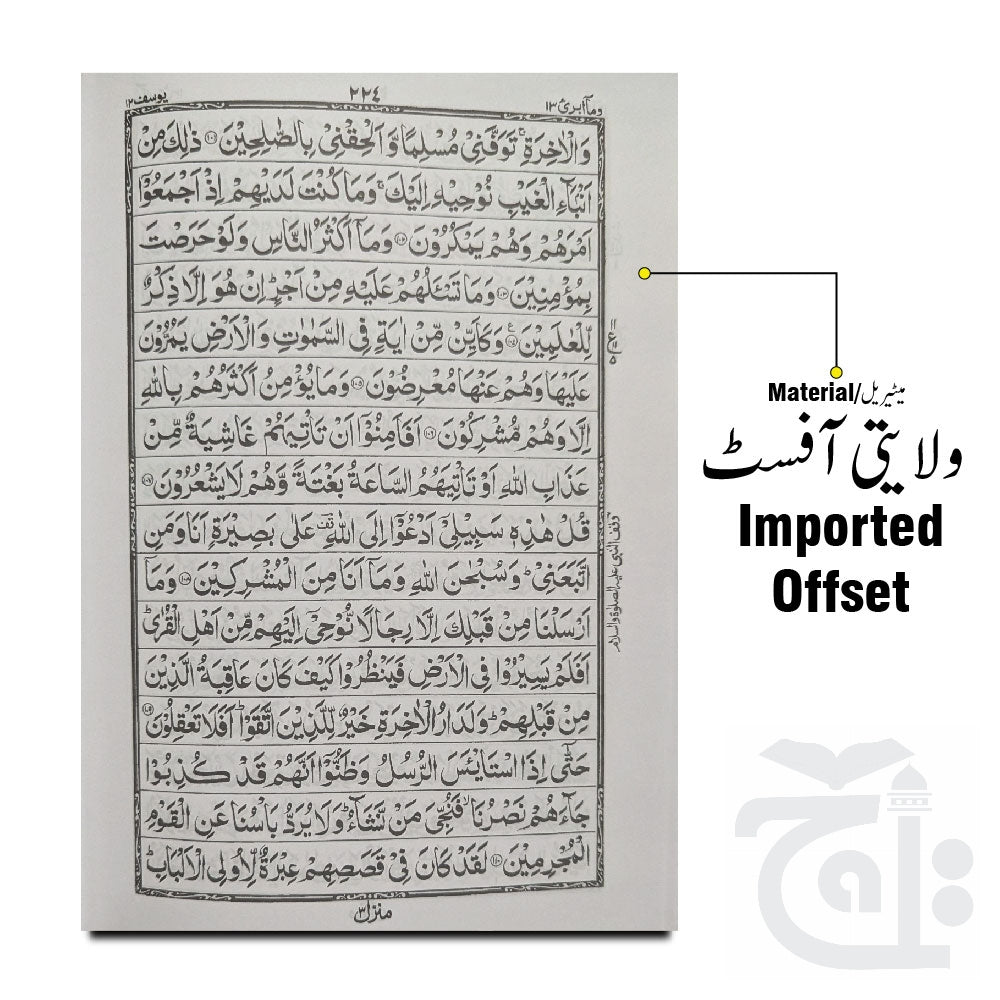 یوسف ١٢
٢٢٤
وما ابرئ ١٣
وَالْاٰخِرَةِ ۚ تَوَفَّنِىْ مُسْلِمًا وَّاَلْحِقْنِىْ بِالصّٰلِحِيْنَ ﴿۱۰۱﴾ ذٰلِكَ مِنْ
اَنْۢبَآءِ الْغَيْبِ نُوْحِيْهِ اِلَيْكَ ۚ وَمَا كُنْتَ لَدَيْهِمْ اِذْ اَجْمَعُوْۤا
اَمْرَهُمْ وَهُمْ يَمْكُرُوْنَ ﴿۱۰۲﴾ وَمَاۤ اَكْثَرُ النَّاسِ وَلَوْ حَرَصْتَ
بِمُؤْمِنِيْنَ ﴿۱۰۳﴾ وَمَا تَسْـَٔلُهُمْ عَلَيْهِ مِنْ اَجْرٍ ؕ اِنْ هُوَ اِلَّا ذِكْرٌ
لِّلْعٰلَمِيْنَ ﴿۱۰۴﴾ وَكَاَيِّنْ مِّنْ اٰيَةٍ فِى السَّمٰوٰتِ وَالْاَرْضِ يَمُرُّوْنَ
عَلَيْهَا وَهُمْ عَنْهَا مُعْرِضُوْنَ ﴿۱۰۵﴾ وَمَا يُؤْمِنُ اَكْثَرُهُمْ بِاللّٰهِ
اِلَّا وَهُمْ مُّشْرِكُوْنَ ﴿۱۰۶﴾ اَفَاَمِنُوْۤا اَنْ تَاْتِيَهُمْ غَاشِيَةٌ مِّنْ
عَذَابِ اللّٰهِ اَوْ تَاْتِيَهُمُ السَّاعَةُ بَغْتَةً وَّهُمْ لَا يَشْعُرُوْنَ ﴿۱۰۷﴾
قُلْ هٰذِهٖ سَبِيْلِىْۤ اَدْعُوْۤا اِلَى اللّٰهِ ؔ عَلٰى بَصِيْرَةٍ اَنَا وَمَنِ
اتَّبَعَنِىْ ؕ وَسُبْحٰنَ اللّٰهِ وَمَاۤ اَنَا مِنَ الْمُشْرِكِيْنَ ﴿۱۰۸﴾ وَمَاۤ
اَرْسَلْنَا مِنْ قَبْلِكَ اِلَّا رِجَالًا نُّوْحِىْۤ اِلَيْهِمْ مِّنْ اَهْلِ الْقُرٰى ؕ
اَفَلَمْ يَسِيْرُوْا فِى الْاَرْضِ فَيَنْظُرُوْا كَيْفَ كَانَ عَاقِبَةُ الَّذِيْنَ
مِنْ قَبْلِهِمْ ؕ وَلَدَارُ الْاٰخِرَةِ خَيْرٌ لِّلَّذِيْنَ اتَّقَوْا ؕ اَفَلَا تَعْقِلُوْنَ ﴿۱۰۹﴾
حَتّٰۤى اِذَا اسْتَايْـَٔسَ الرُّسُلُ وَظَنُّوْۤا اَنَّهُمْ قَدْ كُذِبُوْا
جَآءَهُمْ نَصْرُنَا ۙ فَنُجِّىَ مَنْ نَّشَآءُ ؕ وَلَا يُرَدُّ بَاْسُنَا عَنِ الْقَوْمِ
الْمُجْرِمِيْنَ ﴿۱۱۰﴾ لَقَدْ كَانَ فِىْ قَصَصِهِمْ عِبْرَةٌ لِّاُولِى الْاَلْبَابِ ؕ
وقف النبی علیہ الصلوة والسلام
منزل ۳
Material/میٹیریل
ولایتی آفسٹ
Imported
Offset
تاج